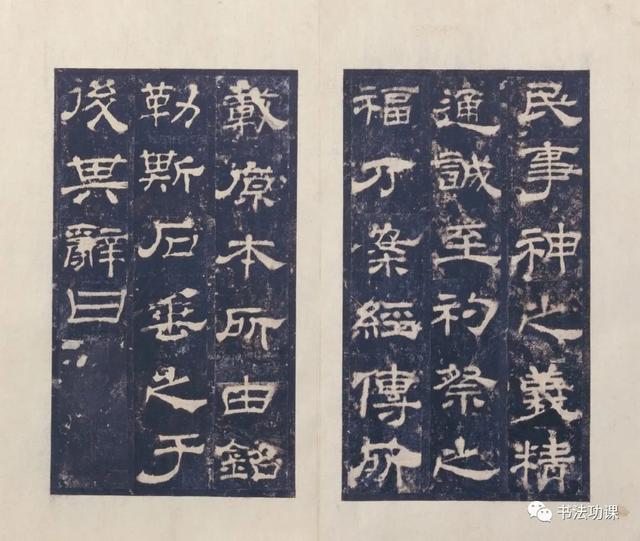 民事神之義精
通誠至礿祭之
福乃案經傳所
載原本所由銘
勒斯石垂之于
後其辭曰
书法功课